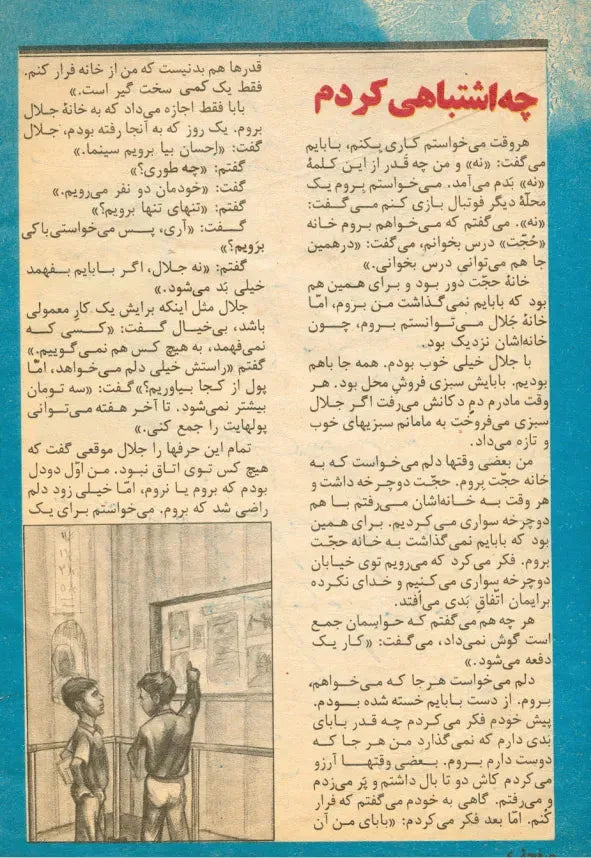 چه‌اشتباهی کردم
هروقت می‌خواستم کاری بکنم، بابایم
می‌گفت: «نه» و من چه قدر از این کلمهٔ
«نه» بَدم می‌آمد. می‌خواستم بروم یک
محلّهٔ دیگر فوتبال بازی کنم می‌گفت:
«نه». می‌گفتم که می‌خواهم بروم خانه
«حُجّت» درس بخوانم، می‌گفت: «درهمین
جا هم می‌توانی درس بخوانی.»
خانهٔ حجّت دور بود و برای همین هم
بود که بابایم نمی‌گذاشت من بروم، امّا
خانهٔ جَلال می‌توانستم بروم، چون
خانه‌اشان نزدیک بود.
با جلال خیلی خوب بودم. همه جا باهم
بودیم. بابایش سبزی فروشِ محل بود. هر
وقت مادرم دم دکانش می‌رفت اگر جلال
سبزی می‌فروخت به مامانم سبزیهای خوب
و تازه می‌داد.
من بعضی وقتها دلم می‌خواست که به
خانه حجّت بروم. حجّت دوچرخه داشت و
هر وقت به خانه‌اشان می‌رفتم با هم
دوچرخه سواری می‌کردیم. برای همین
بود که بابایم نمی‌گذاشت به خانه حجّت
بروم. فکر می‌کرد که می‌رویم توی خیابان
دوچرخه سواری می‌کنیم و خدای نکرده
برایمان اتّفاقِ بَدی می‌اُفتد.
هر چه هم می‌گفتم که حواسِمان جمع
است گوش نمی‌داد، می‌گفت: «کار یک
دفعه می‌شود.»
دلم می‌خواست هرجا که می‌خواهم،
بروم. از دست بابایم خسته شده بودم.
پیش خودم فکر می‌کردم چه قدر بابای
بَدی دارم که نمی‌گذارد من هر جا که
دوست دارم بروم. بعضی وقتها آرزو
می‌کردم کاش دو تا بال داشتم و پَر می‌زدم
و می‌رفتم. گاهی به خودم می‌گفتم که فرار
کُنم. امّا بعد فکر می‌کردم: «بابای من آن
قدرها هم بدنیست که من از خانه فرار کنم.
فقط یک کمی سخت گیر است.»
بابا فقط اجازه می‌داد که به خانهٔ جلال
بروم. یک روز که به آنجا رفته بودم، جلال
گفت: «اِحسان بیا برویم سینما.»
گفتم: «چه طوری؟»
گفت: «خودمان دو نفر می‌رویم.»
گفتم: «تنهای تنها برویم؟»
گفت: «آری، پس می‌خواستی‌باکی
برَویم؟»
گفتم: «نه جلال، اگر بابایم بفهمد
خیلی بَد می‌شود.»
جلال مثل اینکه برایش یک کارِ معمولی
باشد، بی‌خیال گفت: «کسی که
نمی‌فهمد، به هیچ کس هم نمی‌گوییم.»
گفتم «راستش خیلی دلم می‌خواهد، امّا
پول از کجا بیاوریم؟» گفت: «سه تومان
بیشتر نمی‌شود. تا آخر هفته می‌توانی
پولهایت را جمع کنی.»
تمام این حرفها را جلال موقعی گفت که
هیچ کس توی اتاق نبود. من اوّل دودل
بودم که بروم یا نروم، امّا خیلی زود دلم
راضی شد که بروم. می‌خواستم برای یک